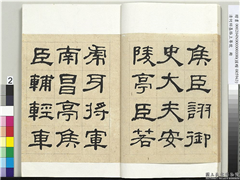 侯臣詡御
史大夫安
陵亭臣若
虎牙將軍
南昌亭侯
臣輔輕車
2